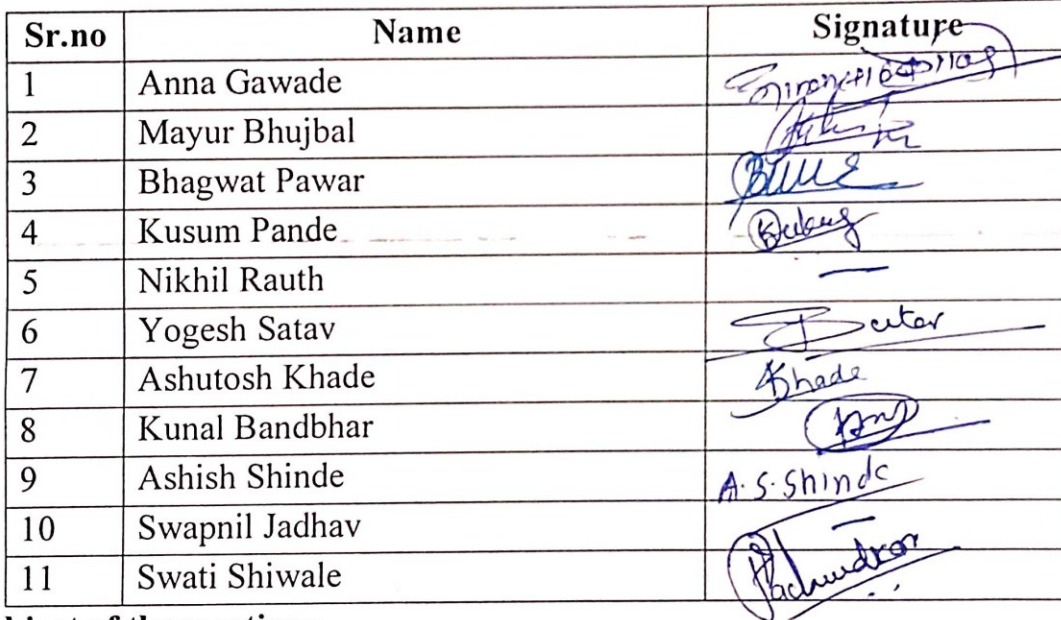 Sr.no Name Signature
1 Anna Gawade
2 Mayur Bhujbal
3 Bhagwat Pawar
4 Kusum Pande
5 Nikhil Rauth —
6 Yogesh Satav
7 Ashutosh Khade Khade
8 Kunal Bandbhar
9 Ashish Shinde A.S.Shinde
10 Swapnil Jadhav —
11 Swati Shiwale